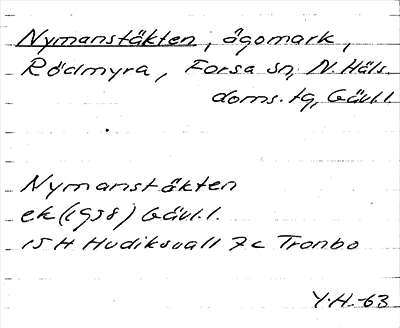 Nymanstäkten, ägomark,
Rödmyra, Forsa sn, N. Häls.
doms. tg, Gävl.l
Nymanstäkten
ek (1938) Gävl.l.
15H Hudiksvall 7c Tronbo
Y.H.-63